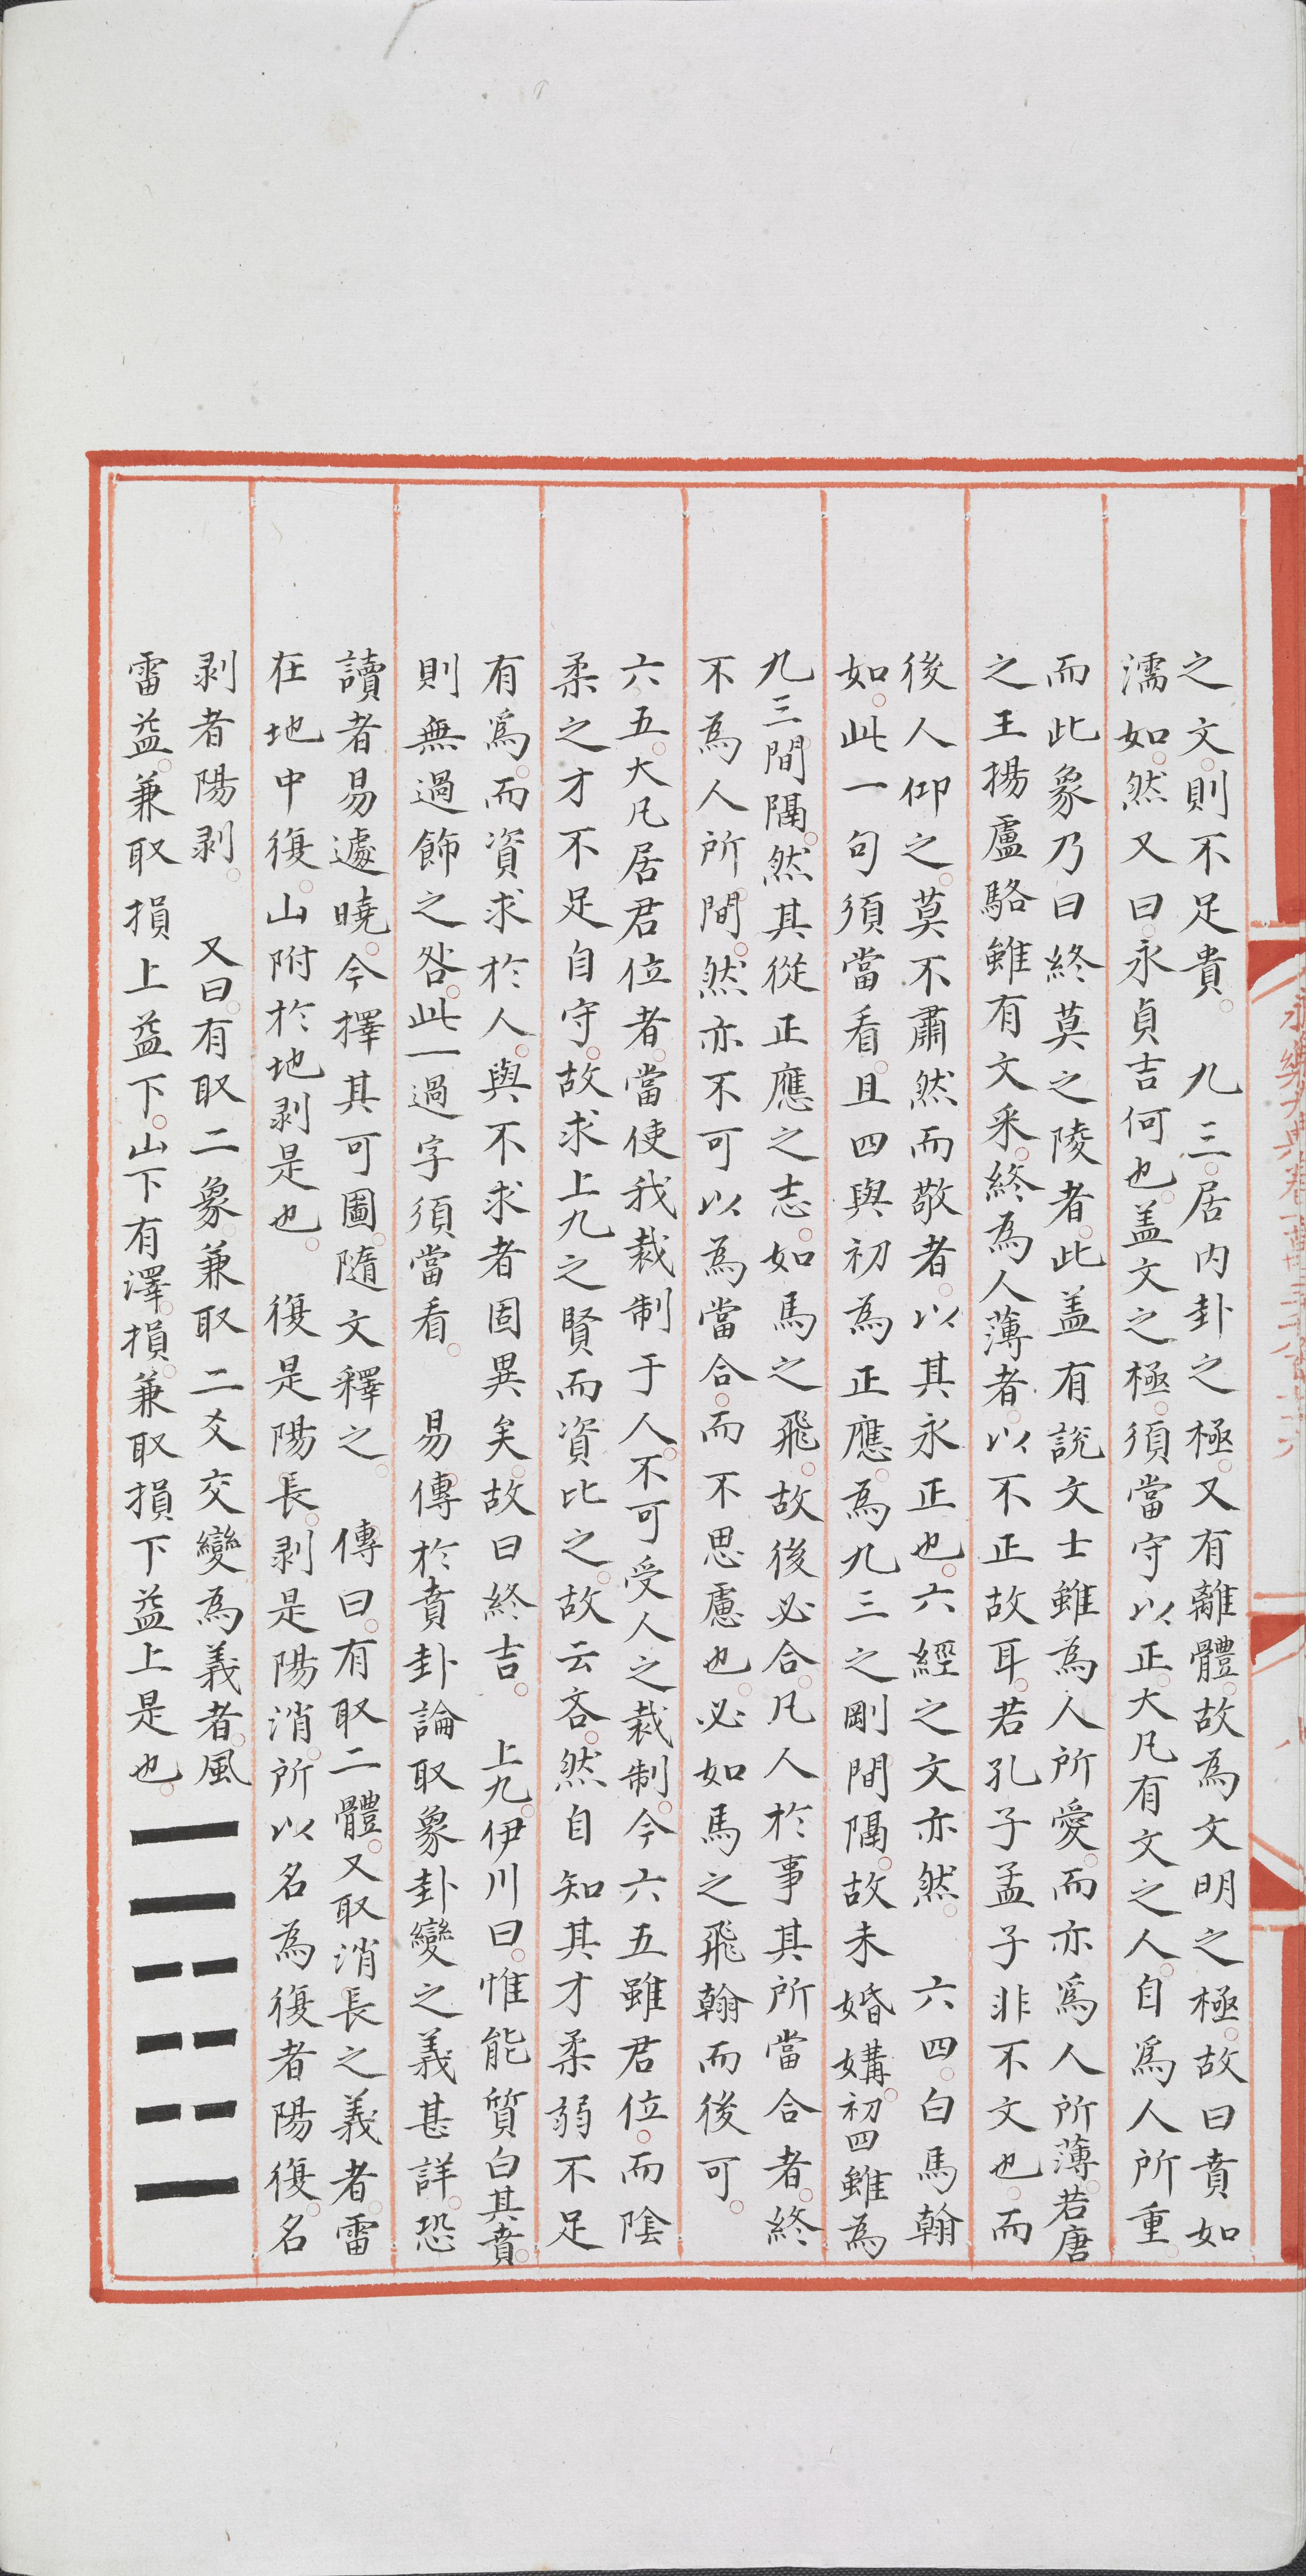 之文則不足貴。　九三。居内卦之極。又有離體。故為文明之極。故曰賁如
濡如。然又曰。永貞吉何也。盖文之極。須當守以正。大凡有文之人。自爲人所重。
而此象乃曰終莫之陵者。此盖有説文士雖為人所愛。而亦爲人所薄。若唐
之王揚盧駱雖有文采。終為人薄者。以不正故耳。若孔子孟子非不文也。而
後人仰之。莫不肅然而敬者。以其永正也。六經之文亦然。　六四。白馬翰
如。此一句須當看。且四與初為正應。為九三之剛間隔。故未婚媾。初四雖為
九三間隔。然其從正應之志。如馬之飛。故後必合。凡人於事其所當合者。終
不為人所間。然亦不可以為當合。而不思慮也。必如馬之飛翰而後可。
六五。大凡居君位者。當使我裁制于人。不可受人之裁制。今六五雖君位。而陰
柔之才不足自守。故求上九之賢而資比之。故云吝。然自知其才柔弱不足
有爲。而資求於人。與不求者固異矣。故曰終吉。　上九。伊川曰。惟能質白其賁。
則無過飾之咎。此一過字須當看。　易傳於賁卦論取象卦變之義甚詳。恐
讀者易遽曉。今擇其可圖。隨文釋之。　傳曰。有取二體。又取消長之義者。雷
在地中復。山附於地剥是也。　復是陽長。剥是陽消。所以名為復者陽復。名
剥者陽剥。　又曰。有取二象。兼取二爻交變為義者。風
雷益。兼取損上益下。山下有澤損。兼取損下益上是也。